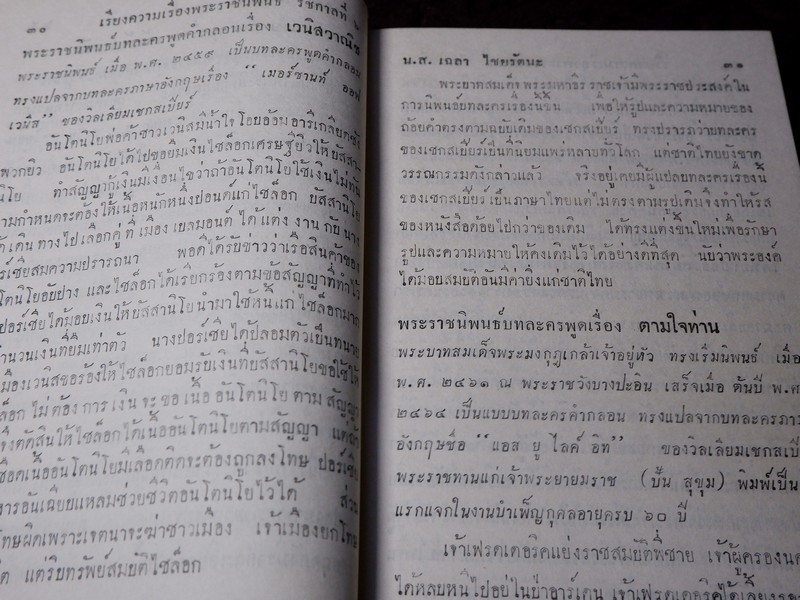 ๓๐ เรียงความเรื่องพระราชนิพนธ์ รัชกาลที่ ๖
พระราชนิพนธ์บทละครพูดคำกลอนเรื่อง เวนิสวาณิช
พระราชนิพนธ์ เมื่อ พ.ศ. ๒๔๕๙ เป็นบทละครพูดคำกลอน
ทรงแปลจากบทละครภาษาอังกฤษเรื่อง “ เมอร์ชานท์ ออฟ
เวนิส” ของวิลเลียมเชกสเปียร์
อันโตนิโยพ่อค้าชาวเวนิสมีน้ำใจโอบอ้อมอารีเกลียดชัง
พวกยิว อันโตนิโยได้ไปขอยืมเงินไซล็อกเศรษฐียิวให้บัสสา
นิโย ทำสัญญากู้เงินมีเงื่อนไขว่าถ้าอันโตนิโยใช้เงินไม่ทัน
ตามกำหนดจะต้องให้เนื้อหนักหนึ่งปอนด์แก่ไซล็อก บัสสานิโย
ได้เดินทางไปเลือกคู่ที่เมืองเบลมอนต์ ได้แต่งงานกับนาง
ปอร์เชียสมความปรารถนา พอดีได้รับข่าวว่าเรือสินค้าของ
อันโตนิโยอับปาง และไซล็อกได้เรียกร้องตามข้อสัญญาที่ทำไว้
ปอร์เชียได้มอบเงินให้บัสสานิโยนำมาใช้หนี้แก่ไซล็อกมากกว่า
จำนวนเงินที่ยืมเท่าตัว นางปอร์เชียได้ปลอมตัวเป็นทนาย
เมืองเวนิสขอร้องให้ไซล็อกยอมรับเงินที่บัสสานิโยขอใช้ให้
ไซล็อกไม่ต้องการเงินจะขอเนื้ออันโตนิโยตามสัญญา
จึงตัดสินให้ไซล็อกได้เนื้ออันโตนิโยตามสัญญา แต่ถ้า
เชือดเนื้ออันโตนิโยมีเลือดติดจะต้องถูกลงโทษ ปอร์เชีย
หารอันเฉียบแหลมช่วยชีวิตอันโตนิโยไว้ได้ ส่วน
โทษผิดเพราะเจตนาจะฆ่าชาวเมือง เจ้าเมืองยกโทษ
แต่ริบทรัพย์สมบัติไซล็อก
น.ส. เถลา ไชยรัตนะ ๓๑
พระบาทสมเด็จพระมหาธีรราชเจ้ามีพระราชประสงค์ใน
การนิพนธ์บทละครเรื่องนี้ขึ้น เพื่อให้รูปและความหมายของ
ถ้อยคำตรงตามฉบับเดิมของเชกสเปียร์ ทรงปรารภว่าบทละคร
ของเชกสเปียร์เป็นที่นิยมแพร่หลายทั่วโลก แต่ชาติไทยยังขาด
วรรณกรรมดังกล่าวแล้ว จริงอยู่เคยมีผู้แปลบทละครเรื่องนี้
ของเชกสเปียร์เป็นภาษาไทยแต่ไม่ตรงตามรูปเดิมจึงทำให้รส
ของหนังสือด้อยไปกว่าของเดิม ได้ทรงแต่งขึ้นใหม่เพื่อรักษา
รูปและความหมายให้คงเดิมไว้ได้อย่างดีที่สุด นับว่าพระองค์
ได้มอบสมบัติอันมีค่ายิ่งแก่ชาติไทย
พระราชนิพนธ์บทละครพูดเรื่อง ตามใจท่าน
พระบาทสมเด็จพระมงกุฎเกล้าเจ้าอยู่หัว ทรงเริ่มนิพนธ์ เมื่อ
พ.ศ. ๒๔๖๑ ณ พระราชวังบางปะอิน เสร็จเมื่อ ต้นปี พ.ศ.
๒๔๖๔ เป็นแบบบทละครคำกลอน ทรงแปลจากบทละครภาษา
อังกฤษชื่อ “แอส ยู ไลค์ อิท” ของวิลเลียมเชกสเปียร์
พระราชทานแก่เจ้าพระยายมราช (ปั้น สุขุม) พิมพ์เป็น
แรกแจกในงานบำเพ็ญกุศลอายุครบ ๖๐ ปี
เจ้าเฟรดเดอริคแย่งราชสมบัติพี่ชาย เจ้าผู้ครองนคร
ได้หลบหนีไปอยู่ในป่าอาร์เดน เจ้าเฟรดเดอริคได้เลี้ยง